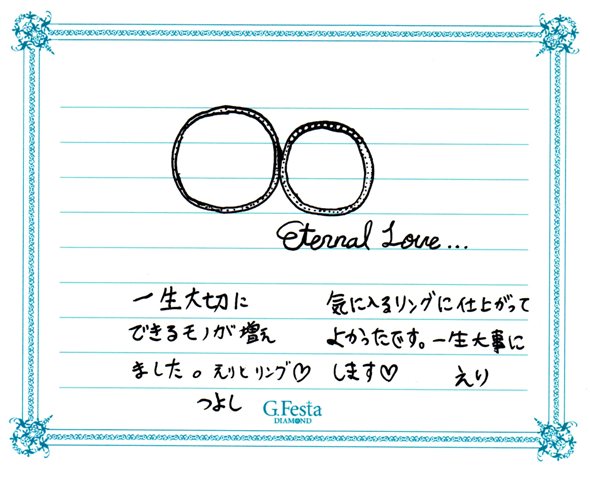 Eternal Love...
一生大切に
できるモノが増え
ました。えりとリング♡
つよし
気に入るリングに仕上がって
よかったです。一生大事に
します♡ えり
G.Festa
DIAMOND